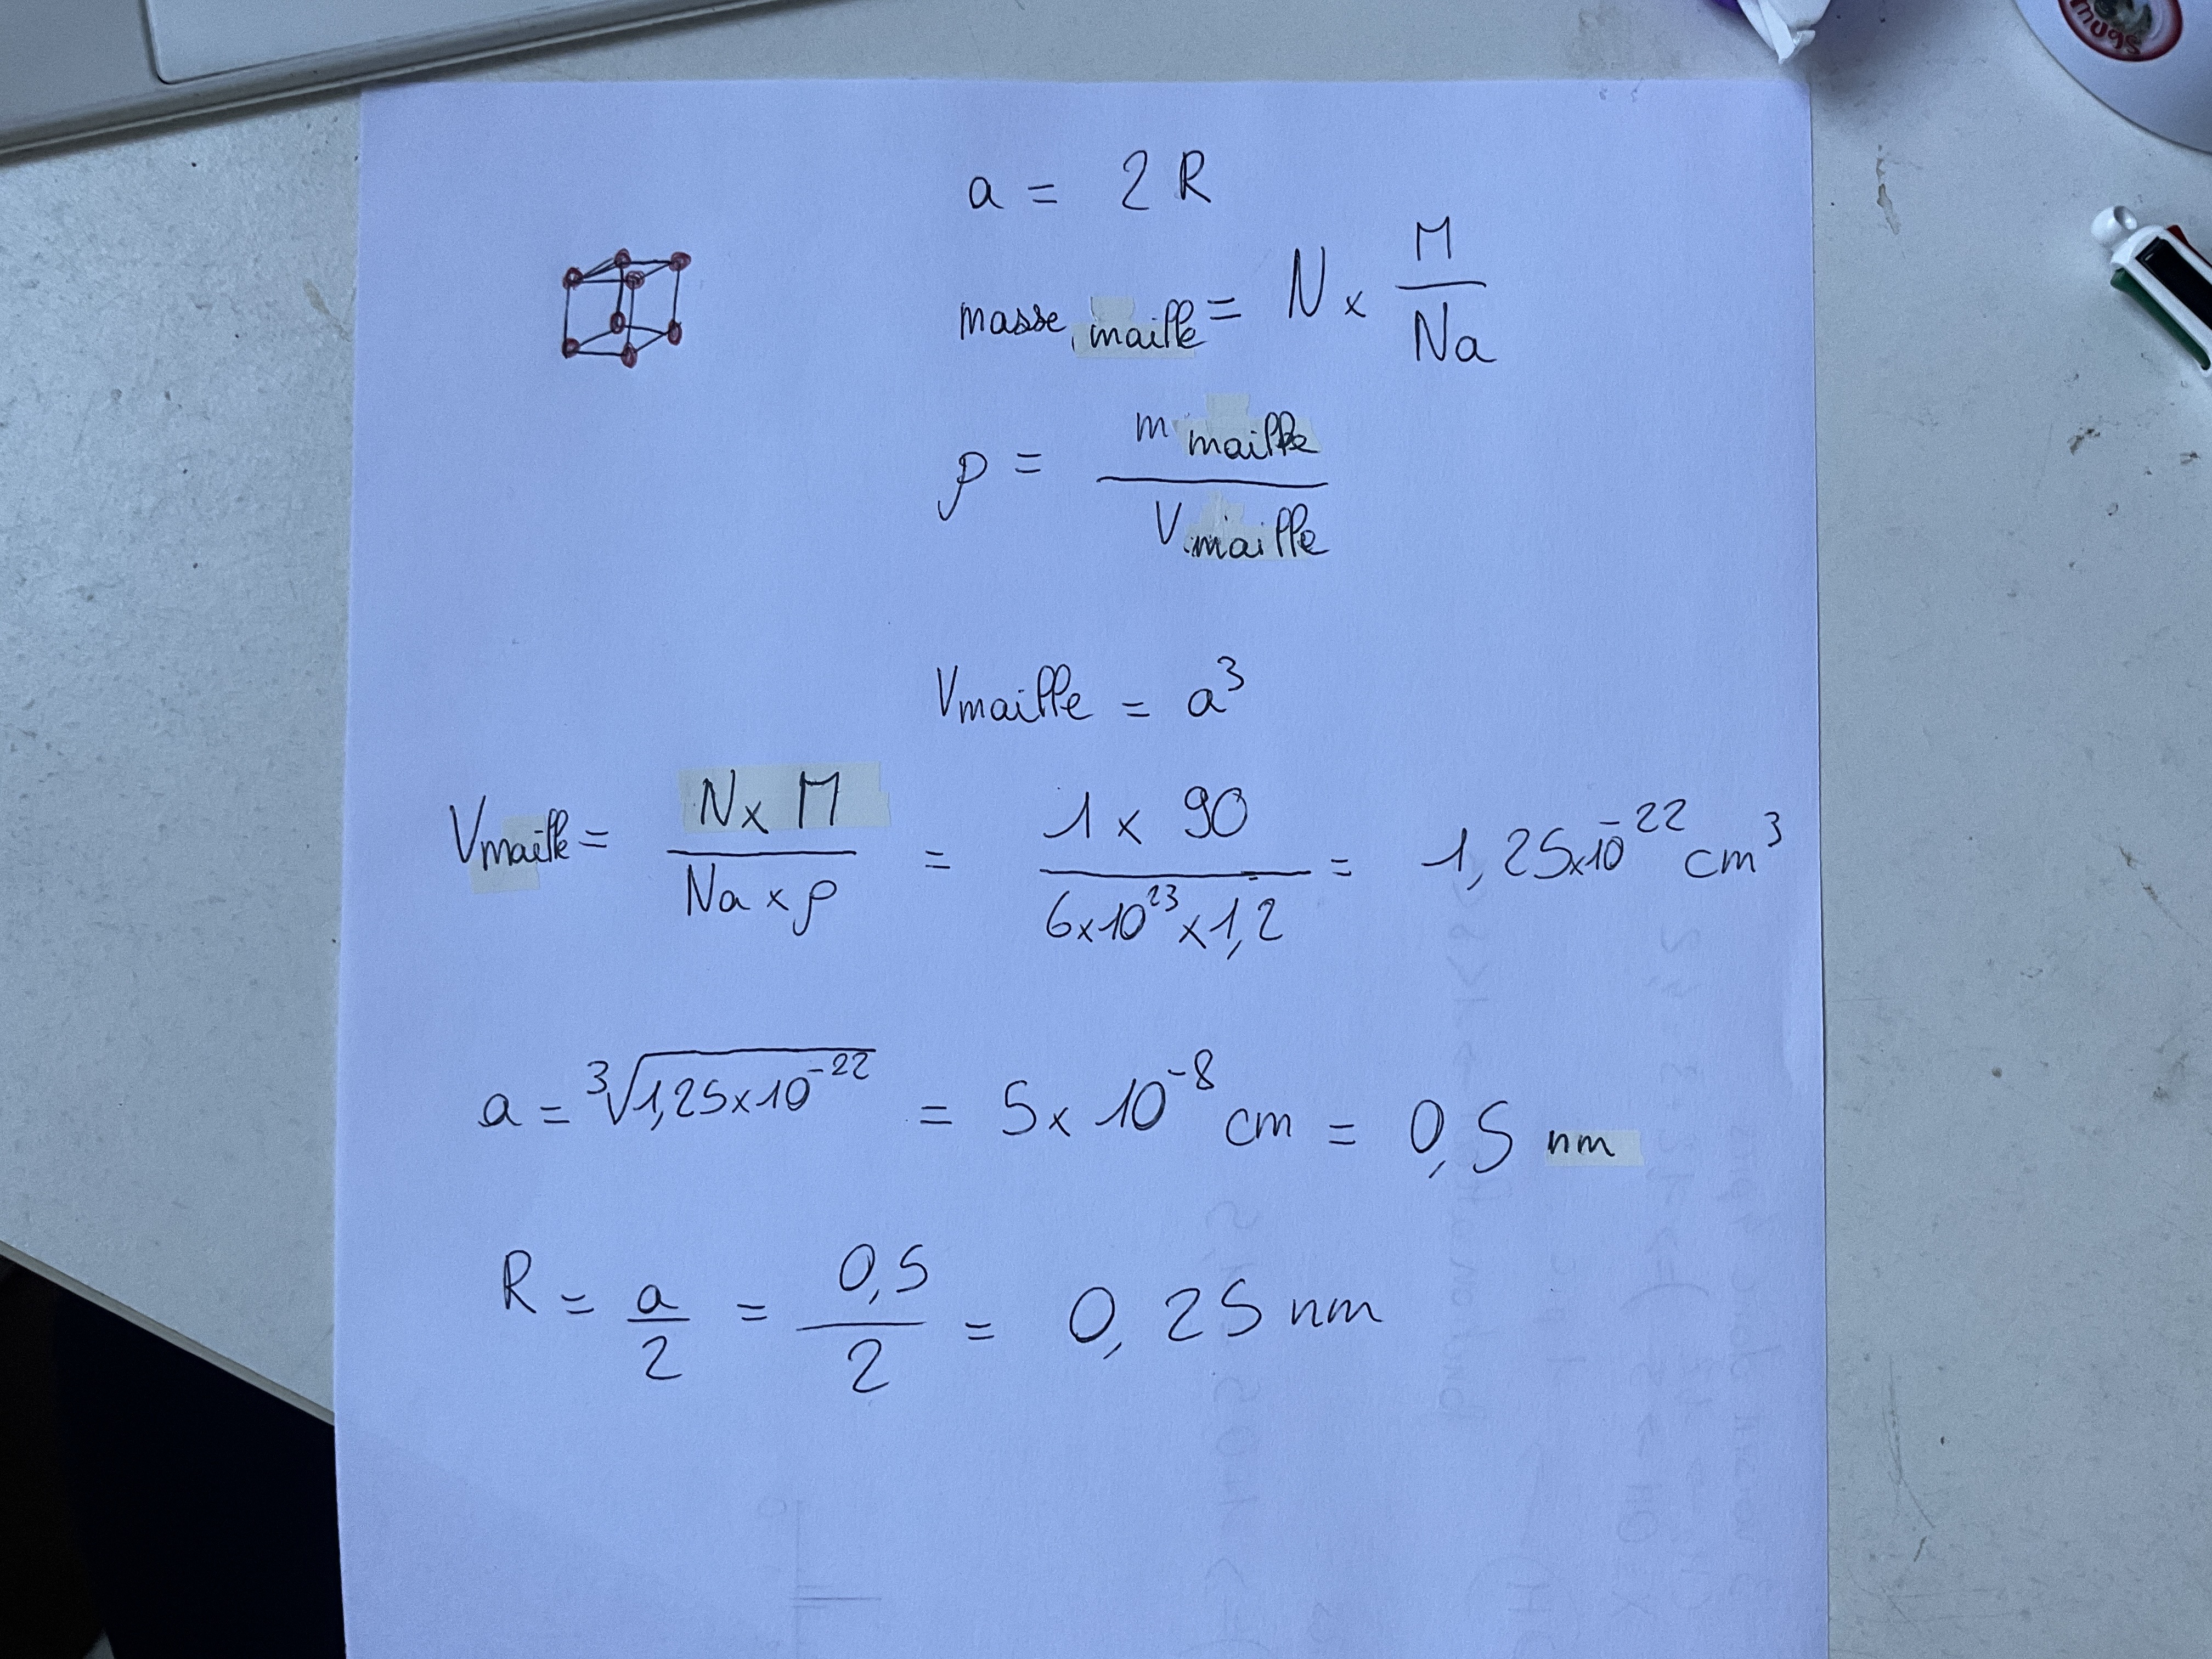 mugs
a = 2 R
masse maille = N x M / Na
ρ = m maille / V maille
Vmaille = a³
Vmaille = N x M / Na x ρ = 1 x 90 / 6x10²³ x 1,2 = 1,25x10⁻²² cm³
a = ³√1,25x10⁻²² = 5x 10⁻⁸ cm = 0,5 nm
R = a / 2 = 0,5 / 2 = 0,25 nm